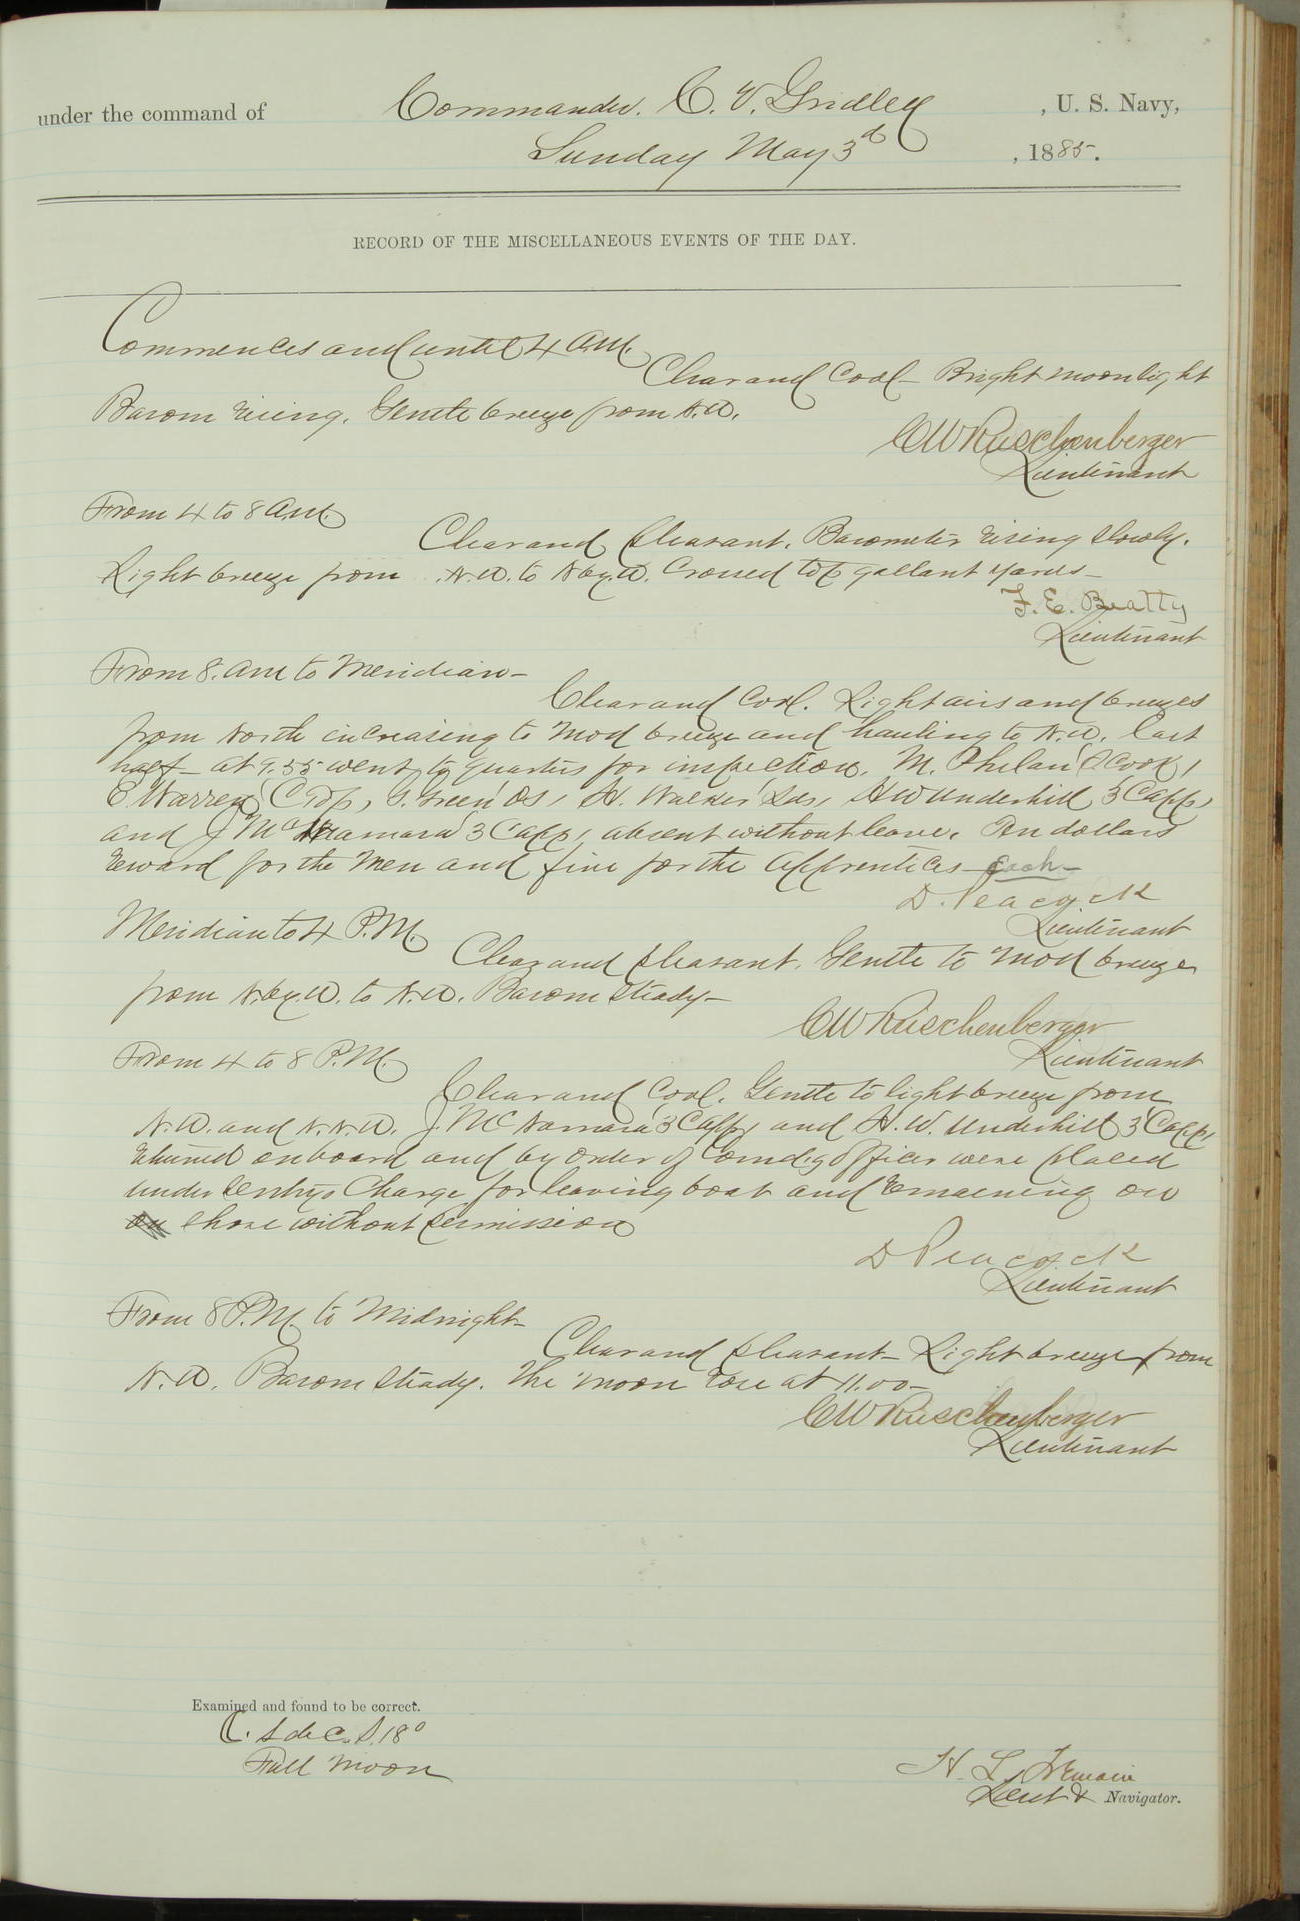 under the command of Commander. C. V. Gridley, U. S. Navy,
Sunday May 3d, 1885.
RECORD OF THE MISCELLANEOUS EVENTS OF THE DAY.
Commences and until 4 A.M.
Clear and Cool - Bright moonlight
Barom rising. Gentle breeze from N.W.
C W Ruschenberger
Lieutenant
From 4 to 8 A.M.
Clear and pleasant. Barometer rising slowly.
Light breeze from N.W. to N by W. Crossed top gallant yards -
F. E. Beatty
Lieutenant
From 8. am to Meridian -
Clear and Cool. Light airs and breezes
from North increasing to mod breeze and hauling to N.W. last
half - at 9.55 went to quarters for inspection. M. Phelan
E Warren S. Green OS, H. Walker Lds, H W Underhill 3 C app,
and J McNamara 3 C app, absent without leave. Ten dollars
reward for the men and five for the apprentices each -
D. Peacock
Lieutenant
Meridian to 4 P.M.
Clear and pleasant. Gentle to mod breeze
from N. by. W. to N.W. Barom steady -
C W Ruschenberger
Lieutenant
From 4 to 8 P.M.
Clear and Cool. Gentle to light breeze from
N.W. and N.N.W. J. McNamara 3 C app, and H. W. Underhill 3 C app,
returned onboard and by order of Comdg Officer were placed
under Sentry's Charge for leaving boat and remaining on
shore without permission
D Peacock
Lieutenant
From 8 P.M. to Midnight -
Clear and pleasant - Light breeze from
N.W. Barom steady. The moon rose at 11.00 -
C W Ruschenberger
Lieutenant
Examined and found to be correct.
Full Moon
H. L. Tremain
Lieut & Navigator.